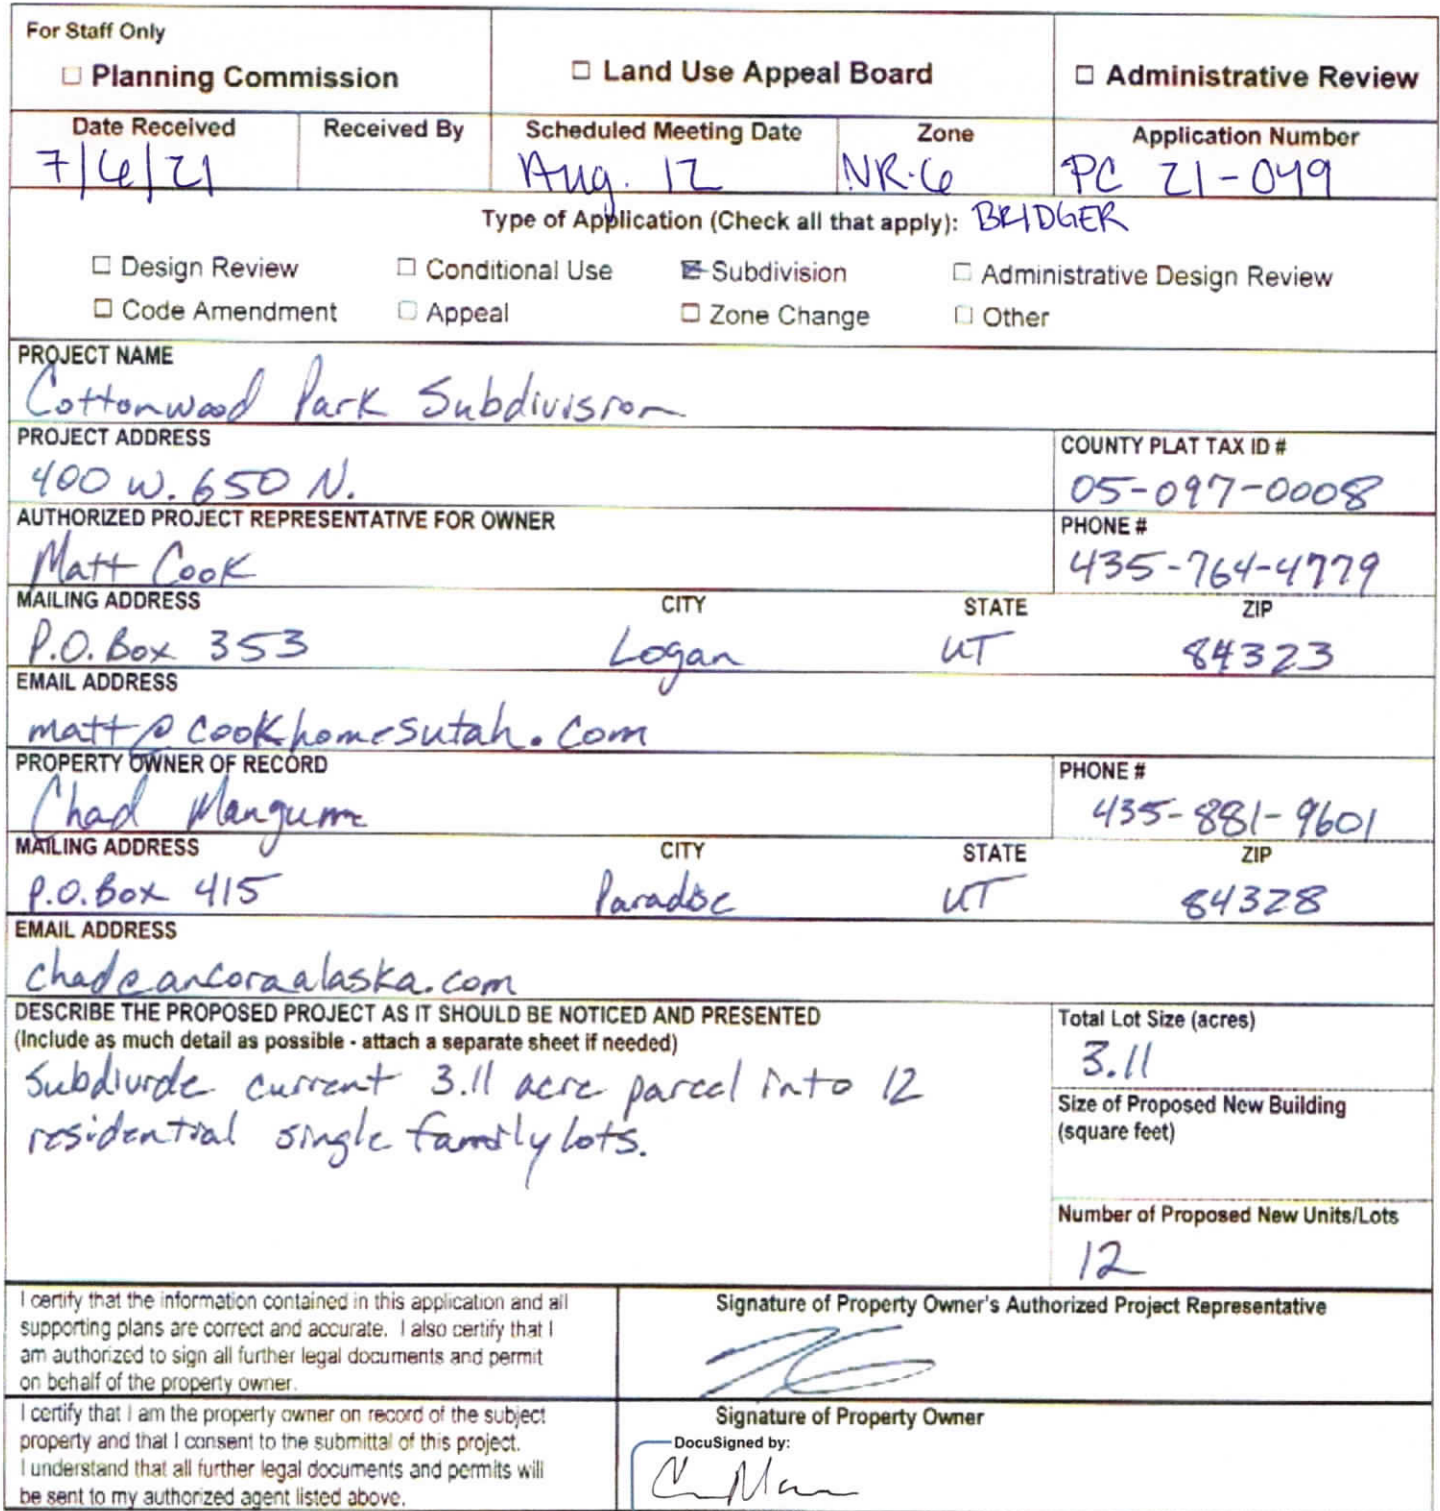 For Staff Only
☐ Planning Commission ☐ Land Use Appeal Board ☐ Administrative Review
Date Received Received By Scheduled Meeting Date Zone Application Number
7/6/21 Aug. 12 NR-6 PC 21-049
Type of Application (Check all that apply): BRIDGER
☐ Design Review ☐ Conditional Use ☒ Subdivision ☐ Administrative Design Review
☐ Code Amendment ☐ Appeal ☐ Zone Change ☐ Other
PROJECT NAME
Cottonwood Park Subdivision
PROJECT ADDRESS COUNTY PLAT TAX ID #
400 W. 650 N. 05-097-0008
AUTHORIZED PROJECT REPRESENTATIVE FOR OWNER PHONE #
Matt Cook 435-764-4779
MAILING ADDRESS CITY STATE ZIP
P.O. Box 353 Logan UT 84323
EMAIL ADDRESS
matt@cookhomesutah.com
PROPERTY OWNER OF RECORD PHONE #
Chad Mangum 435-881-9601
MAILING ADDRESS CITY STATE ZIP
P.O. Box 415 Paradise UT 84328
EMAIL ADDRESS
chad@ancoraalaska.com
DESCRIBE THE PROPOSED PROJECT AS IT SHOULD BE NOTICED AND PRESENTED Total Lot Size (acres)
(Include as much detail as possible - attach a separate sheet if needed) 3.11
Subdivide current 3.11 acre parcel into 12
residential single family lots.
Size of Proposed New Building
(square feet)
Number of Proposed New Units/Lots
12
I certify that the information contained in this application and all
supporting plans are correct and accurate. I also certify that I
am authorized to sign all further legal documents and permit
on behalf of the property owner.
Signature of Property Owner's Authorized Project Representative
I certify that I am the property owner on record of the subject
property and that I consent to the submittal of this project.
I understand that all further legal documents and permits will
be sent to my authorized agent listed above.
Signature of Property Owner
DocuSigned by: